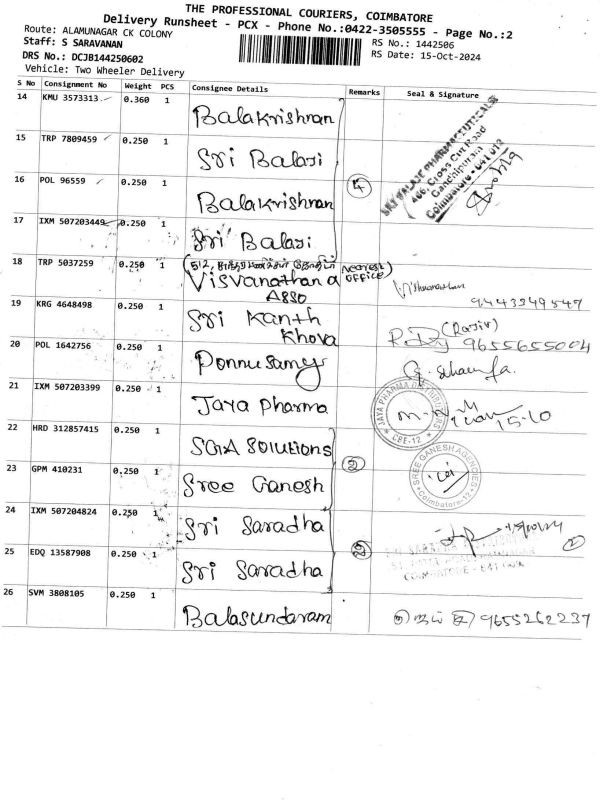 THE PROFESSIONAL COURIERS, COIMBATORE
Delivery Runsheet - PCX - Phone No.:0422-3505555 - Page No.:2
Route: ALAMUNAGAR CK COLONY
Staff: S SARAVANAN
RS No.: 1442506
DRS No.: DCJB144250602
RS Date: 15-Oct-2024
Vehicle: Two Wheeler Delivery
S No Consignment No Weight PCS Consignee Details Remarks Seal & Signature
14 KMU 3573313 0.360 1 Balakrishnan
15 TRP 7809459 0.250 1 Sri Balaji
16 POL 96559 0.250 1 Balakrishnan 4
SRI BALAJI PHARMACEUTICALS
466, Cross Cut Road
Gandhipuram
Coimbatore - 641 012
17 IXM 507203449 0.250 1 Sri Balaji
18 TRP 5037259 0.250 1 Visvanathan a
Asso
Nearest
office
9443949547
19 KRG 4648498 0.250 1 Sri Kanth
Khova
(Rajiv)
9655655004
20 POL 1642756 0.250 1 Ponnusamy
21 IXM 507203399 0.250 1 Jaya Pharma
JAYA PHARMA DISTRIBUTORS
CBE-12
15-10
22 HRD 312857415 0.250 1 SGA Solutions
2
23 GPM 410231 0.250 1 Sree Ganesh
SREE GANESH AGENCIES
Coimbatore-12
24 IXM 507204824 0.250 1 Sri Saradha
2
25 EDQ 13587908 0.250 1 Sri Saradha
COIMBATORE - 641
26 SVM 3808105 0.250 1 Balasundaram
9655262237